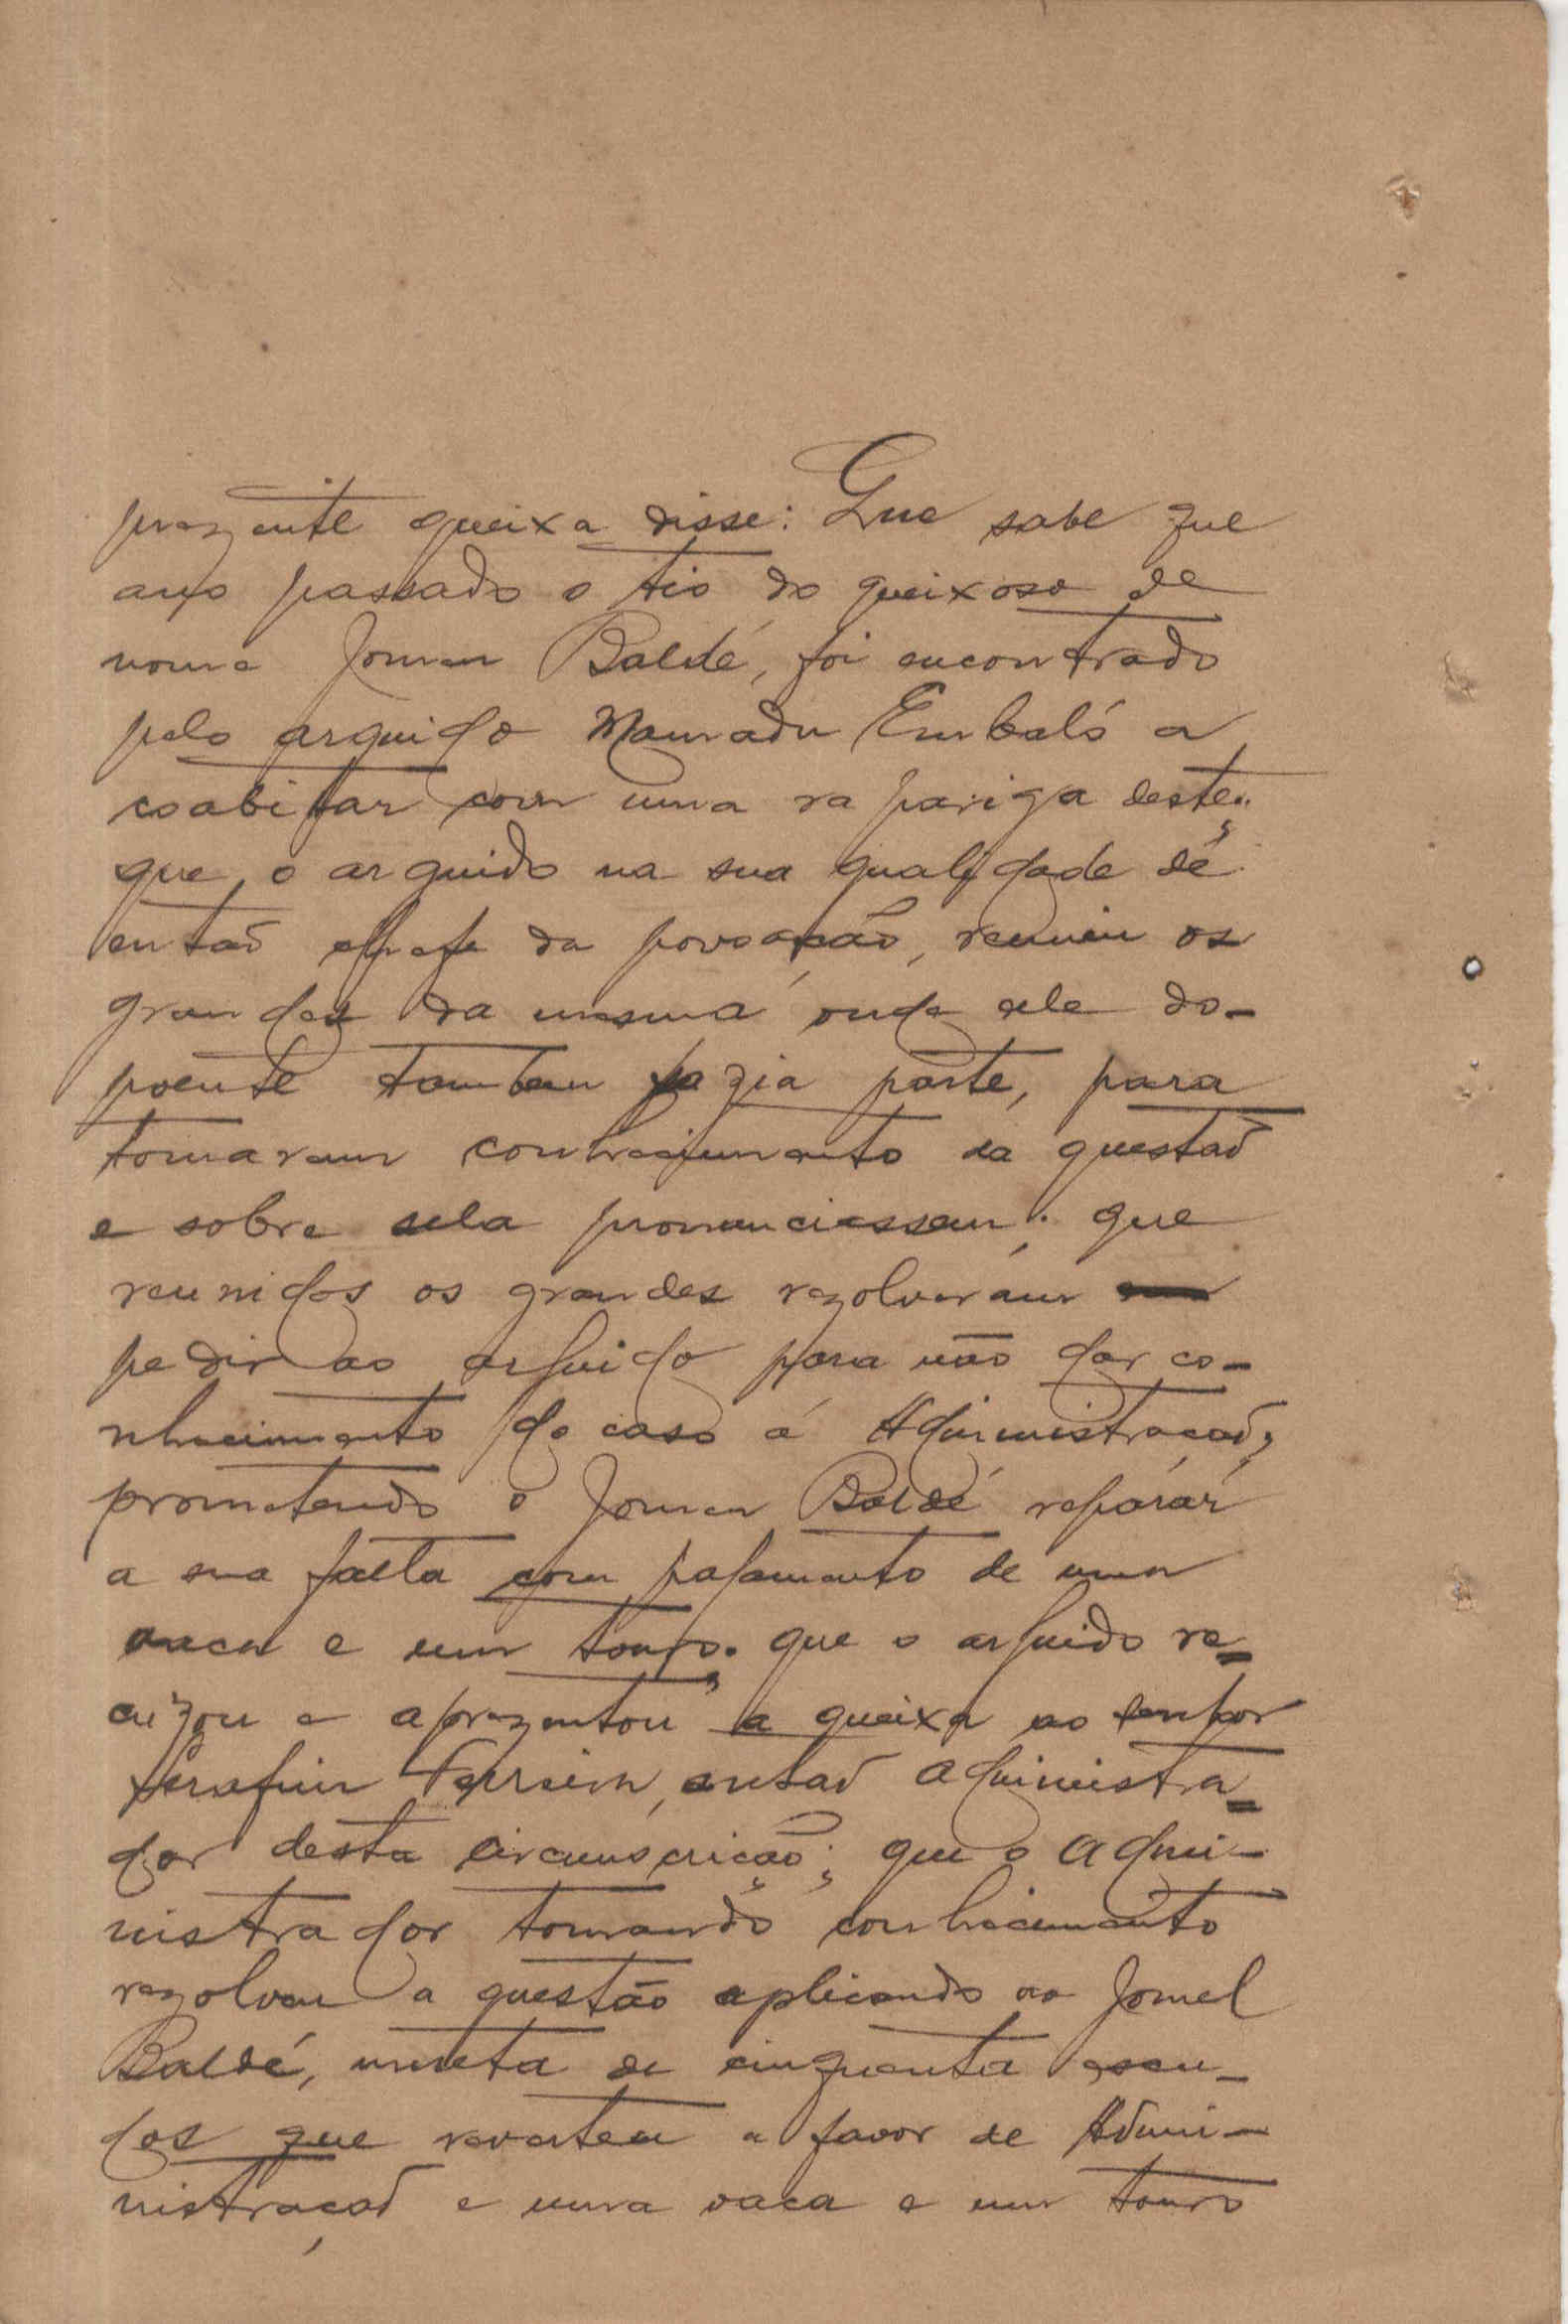 prezente queixa disse: Que sabe que
ano passado o tio do queixoso de
nome Jomen Baldé, foi encontrado
pelo arguido Mamadu Embaló a
coabitar com uma rapariga deste;
que o arguido na sua qualidade de
então chefe da povoação, reuniu os
grandes da mesma onde ele do-
poente tambem fazia parte, para
tomarem conhecimento da questão
e sobre ela pronunciassem; que
reunidos os grandes rezolveram
pedir ao arguido para não dar co-
nhecimento do caso á Administração,
prometendo o Jomen Baldé reparár
a sua falta com pagamento de uma
vaca e um touro; que o arguido re-
cuzou e aprezentou a queixa ao senhor
Serafim Ferreira, então administra-
dor desta circunscrição; que o admi-
nistrador tomando conhecimento
rezolveu a questão aplicando ao Jomel
Baldé, multa de cinquenta escu-
dos que reverteu a favor de Admi-
nistração e uma vaca e um touro